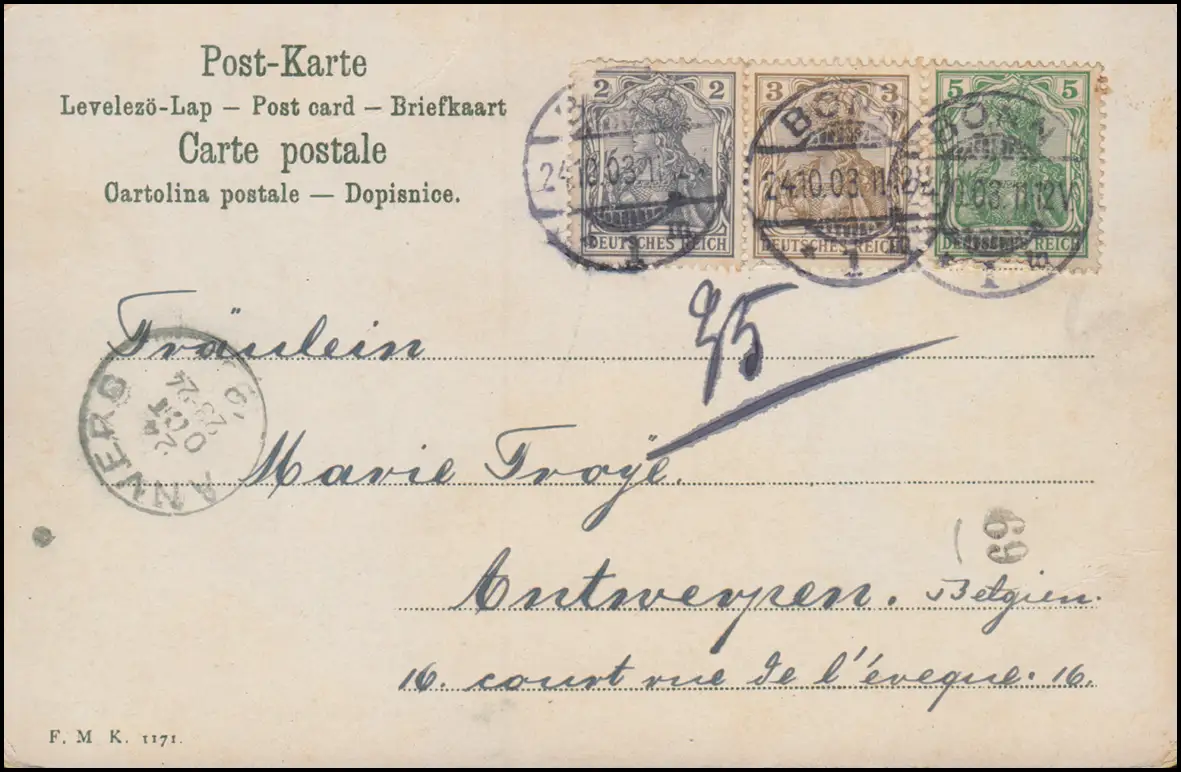 Post-Karte
Levelezö-Lap – Post card – Briefkaart
Carte postale
Cartolina postale — Dopisnice.
2 2
DEUTSCHES REICH
3 3
DEUTSCHES REICH
5 5
DEUTSCHES REICH
24.10.03.11
* 1 m
BONN
24.10.03.11-12V
* 1
BONN
10.03.11-12V.
* 1 m
Fräulein
ANVERS
OCT
23-24
Marie Troÿe.
69
Antwerpen. Belgien.
16. court rue de l'éveque. 16.
F. M. K. 1171.